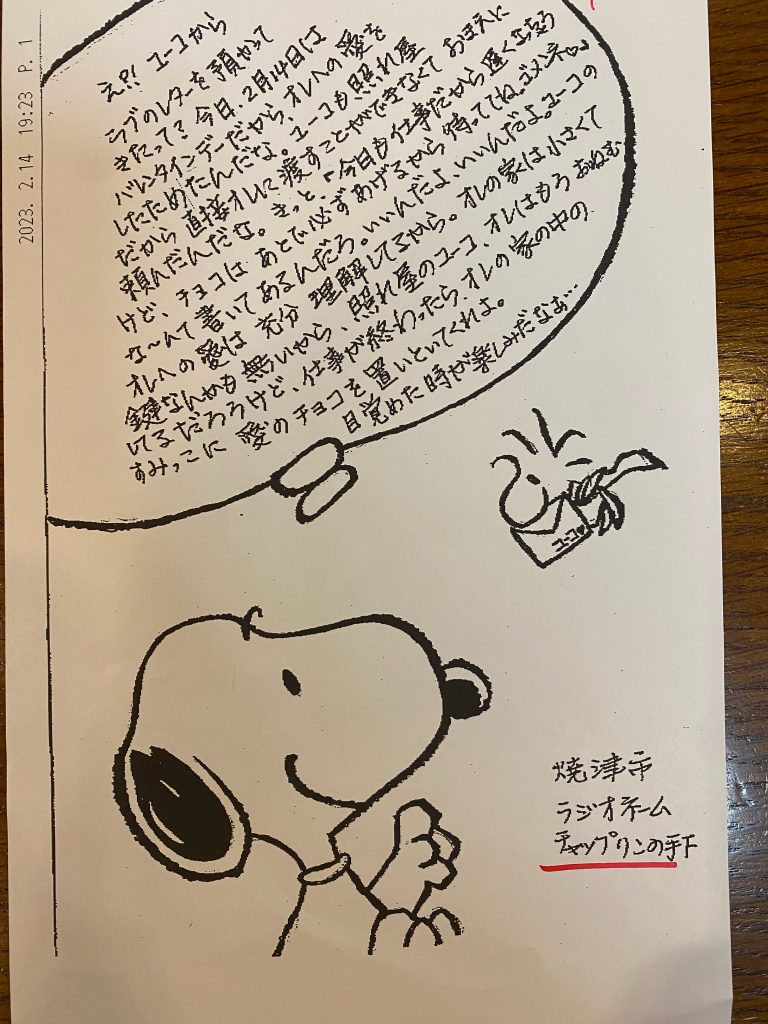 2023. 2.14 19:23 P. 1
え?! ユーコから
ラブのレターを預かって
きたって? 今日、2月14日は
バレンタインデーだから、オレへの愛を
したためたんだな。ユーコも、照れ屋
だから 直接オレに渡すことができなくて おまえに
頼んだんだな。きっと、「今日も仕事だから遅くなる
けど、チョコは あとで必ずあげるから 待っててね。ゴメンネ♡」
な〜んて書いてあるんだろ。いいんだよ、いいんだよ。ユーコの
オレへの愛は 充分 理解してるから。オレの家は小さくて
鍵なんかも無いから、照れ屋のユーコ、オレはもう おねむ
してるだろうけど、仕事が終わったら、オレの家の中の
すみっこに 愛のチョコを置いといてくれよ。
目覚めた時が楽しみだなぁ…
ユーコ♡
焼津市
ラジオネーム
チャップリンの手下